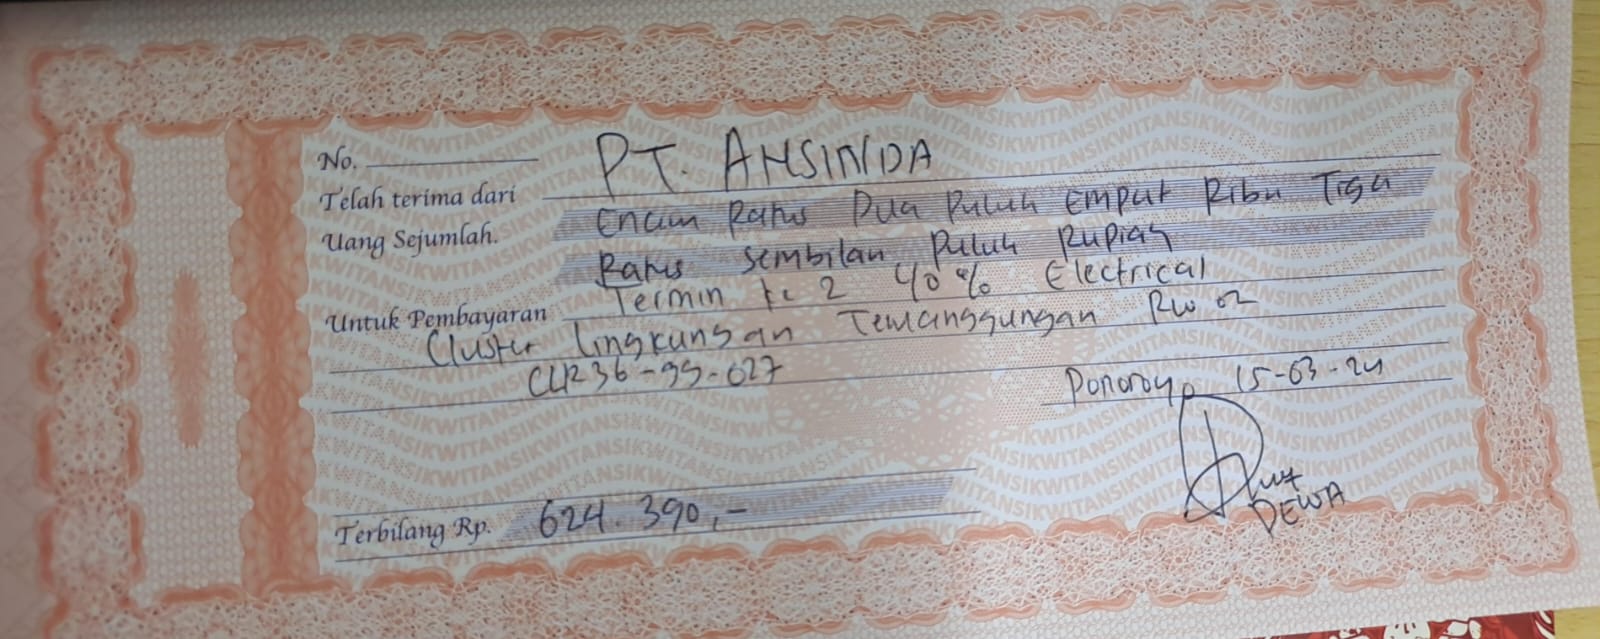 No.
Telah terima dari PT. AHSINDA
Uang Sejumlah. Enam Ratus Dua Puluh Empat Ribu Tiga
Ratus Sembilan Puluh Rupiah
Untuk Pembayaran Termin ke 2 40% Electrical
Cluster Lingkungan Temanggungan RW 02
CLR36-99-027
Ponorogo 15-03-24
DEWA
Terbilang Rp. 624.390,-